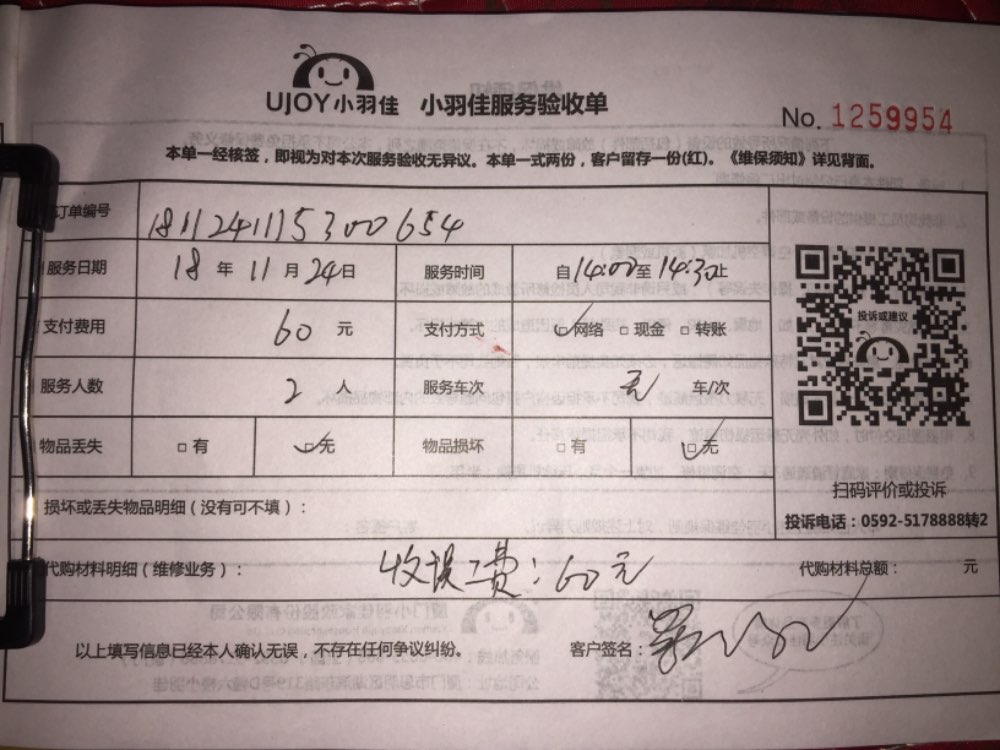 UJOY小羽佳 小羽佳服务验收单
No. 1259954
本单一经核签，即视为对本次服务验收无异议。本单一式两份，客户留存一份(红)。《维保须知》详见背面。
订单编号 1811241115300654
服务日期 18 年 11 月 24 日 服务时间 自14:00至14:30止
支付费用 60 元 支付方式 网络 现金 转账
服务人数 2 人 服务车次 无 车/次
物品丢失 有 无 物品损坏 有 无
投诉或建议
扫码评价或投诉
投诉电话：0592-5178888转2
损坏或丢失物品明细（没有可不填）：
代购材料明细（维修业务）： 收误工费：60元 代购材料总额： 元
以上填写信息已经本人确认无误，不存在任何争议纠纷。 客户签名：